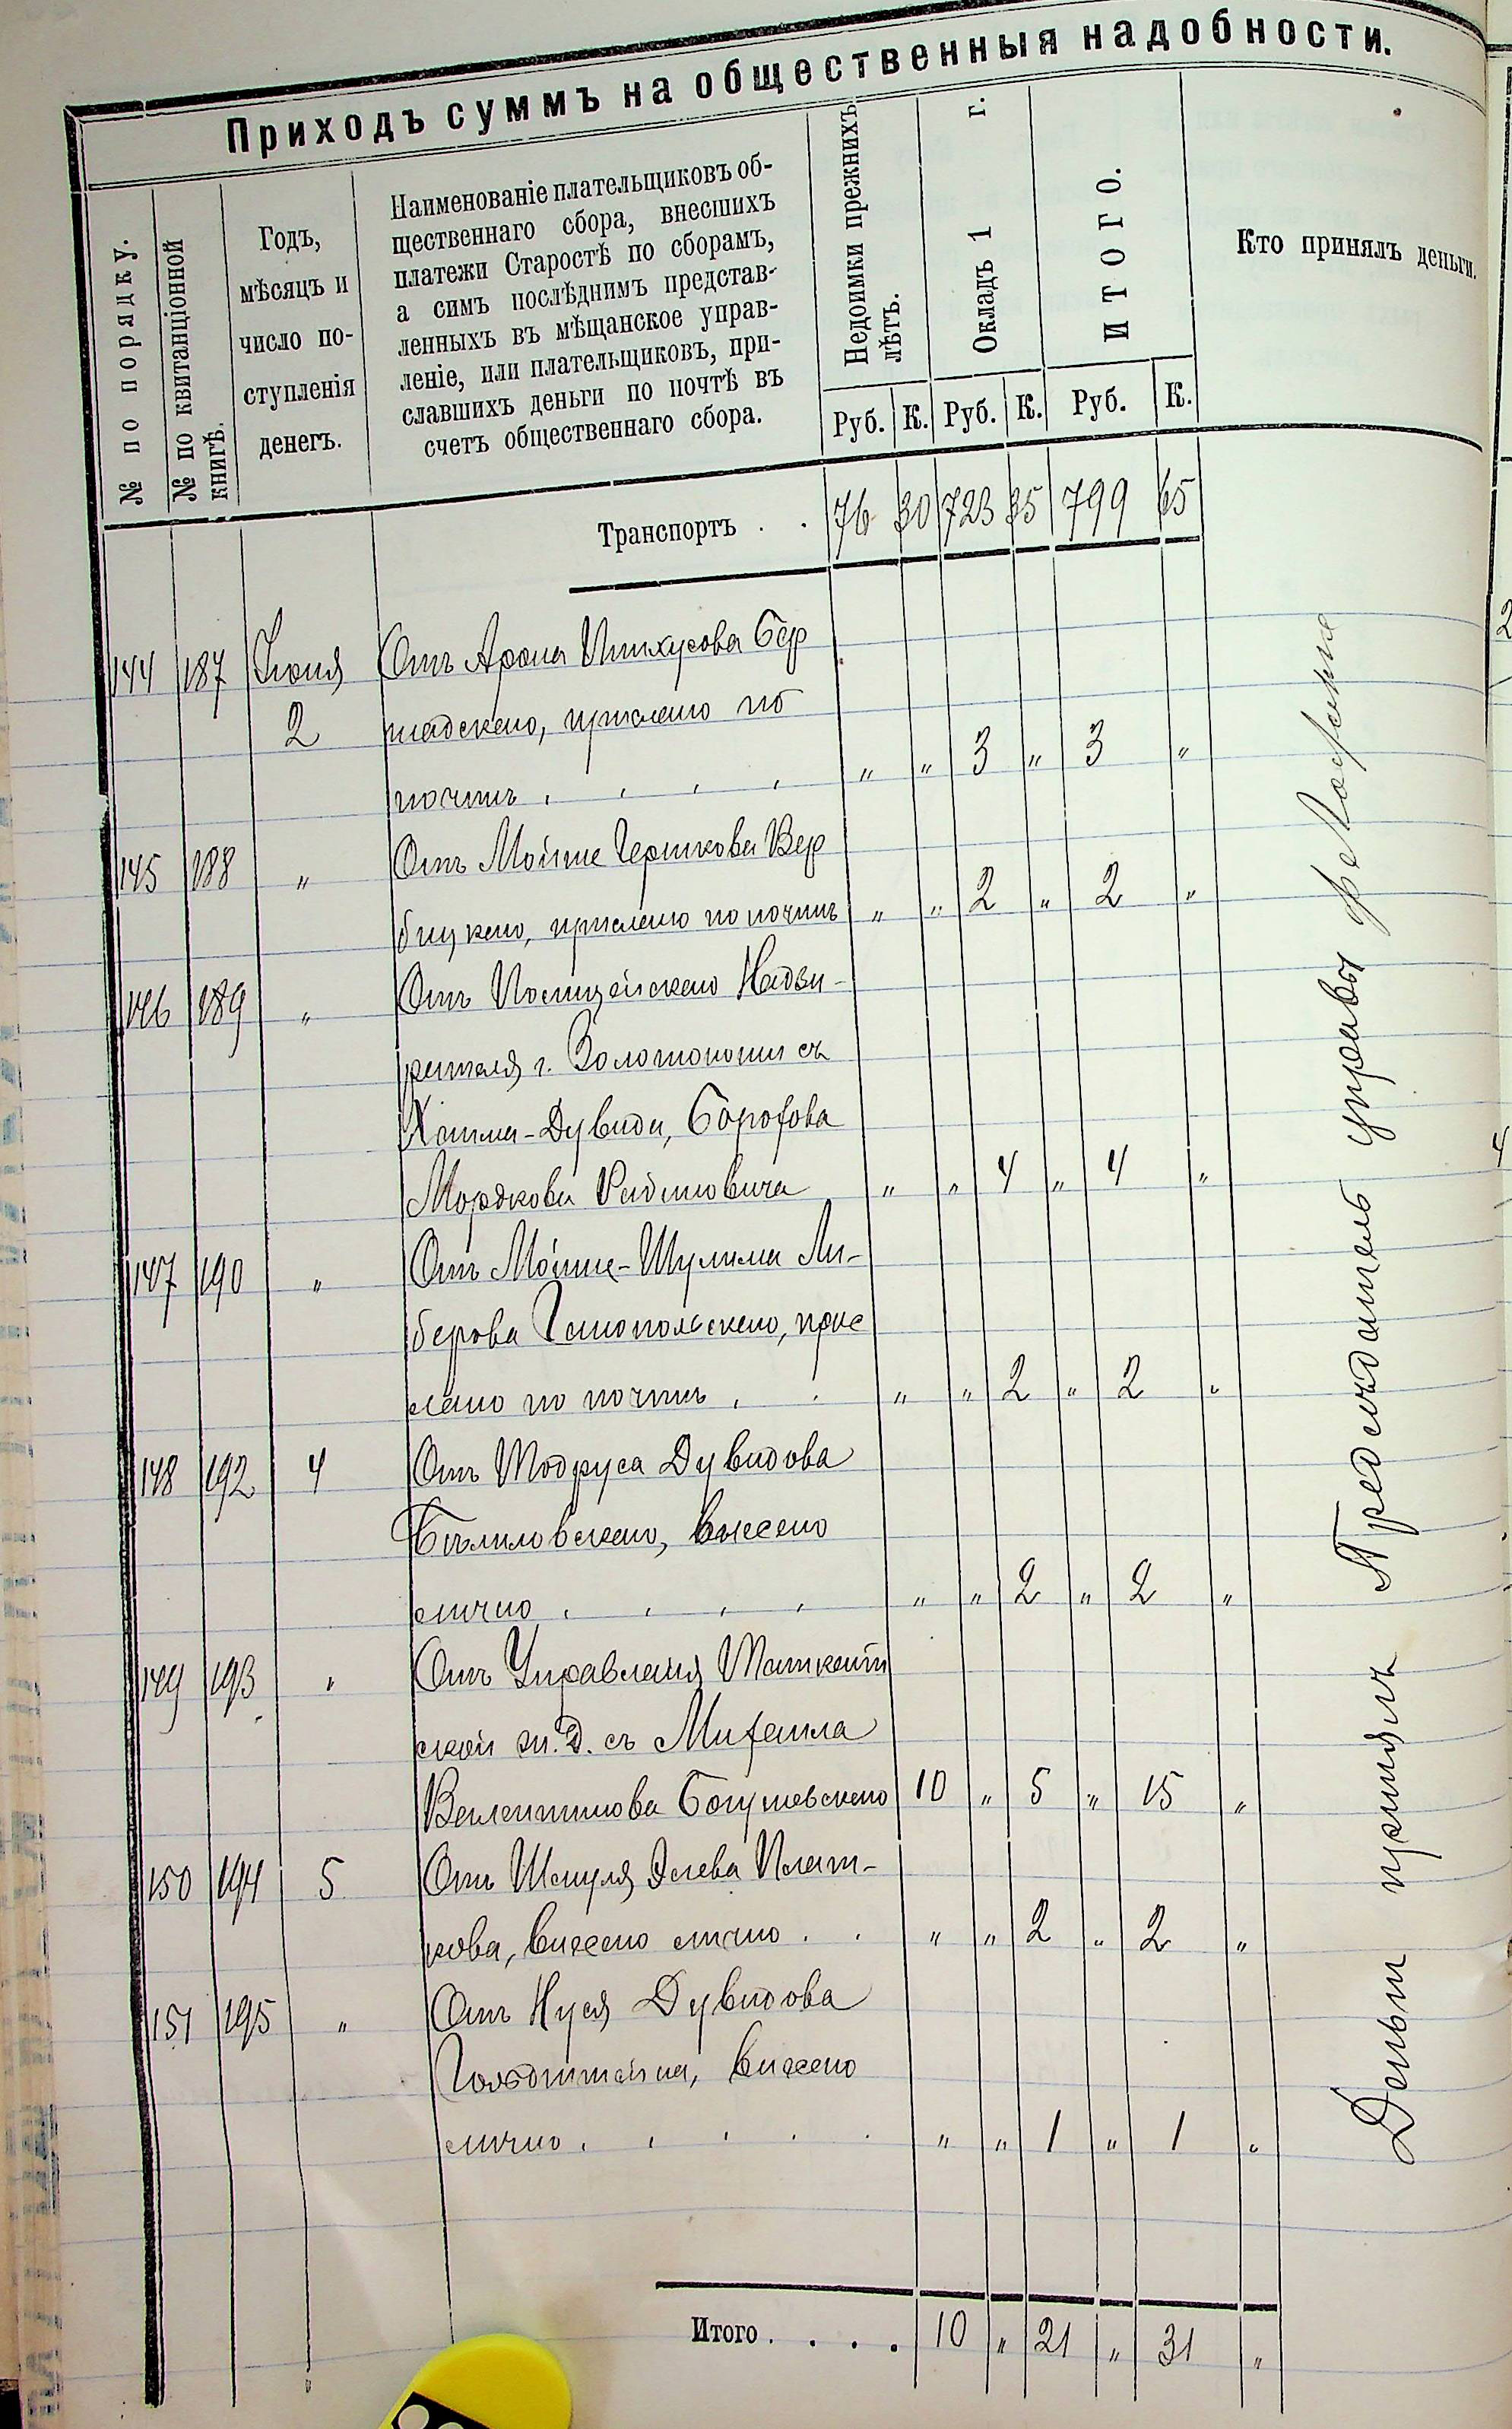 Приходъ суммъ на общественныя надобности.
№ по порядку.
№ по квитанціонной
книгѣ.
Годъ,
мѣсяцъ и
число по-
ступленія
денегъ.
Наименованіе плательщиковъ об-
щественнаго сбора, внесшихъ
платежи Старостѣ по сборамъ,
а симъ послѣднимъ представ-
ленныхъ въ мѣщанское управ-
леніе, или плательщиковъ, при-
славшихъ деньги по почтѣ въ
счетъ общественнаго сбора.
Недоимки прежнихъ
лѣтъ.
Окладъ 1 г.
ИТОГО.
Кто принялъ деньги.
Руб. К. Руб. К. Руб. К.
Транспортъ . . 76 30 723 35 799 65
144 187 Іюня Отъ Арона Пинхусова Бер
2 шадскаго, прислано по
почтѣ . . . . " " 3 " 3 "
145 188 " Отъ Мойше Гершкова Вер
бицкаго, прислано по почтѣ " " 2 " 2 "
146 189 " Отъ Полицейскаго Надзи-
рателя г. Золотоноши съ
Хаима-Дувида, Борохова
Мордкова " " 4 " 4 "
147 190 " Отъ Мойше-Шулима Ли-
берова Гайопольскаго, прис
лано по почтѣ . . " " 2 " 2 "
148 192 4 Отъ Тодруса Дувидова
Бѣлиловскаго, внесено
лично . . . . " " 2 " 2 "
149 193 " Отъ Управленія Ташкент
ской ж.д. съ Михаила
Валентинова Богушевскаго 10 " 5 " 15 "
150 194 5 Отъ Шмуля Элева Плат-
кова, внесено лично . . " " 2 " 2 "
151 195 " Отъ Нуся Дувидова
Гольдштейна, внесено
лично . . . . . " " 1 " 1 "
Итого . . . . 10 " 21 " 31 "
Деньги принялъ Предсѣдатель управы